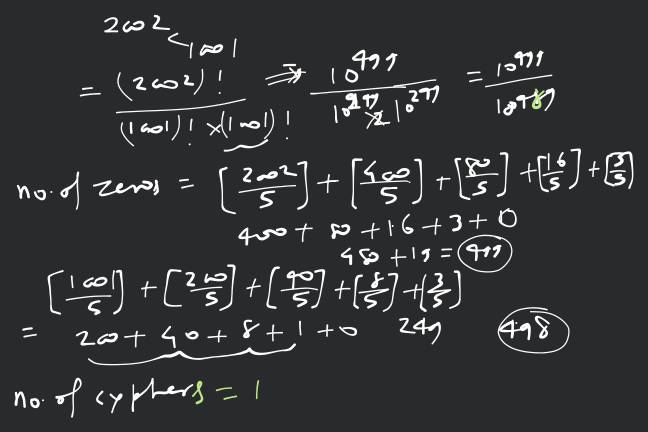 2002
1001
= (2002)! / (1001)! × (1001)! ⇒ 10^499 / 10^249 × 10^249 = 10^499 / 10^498
no. of zeros = [2002/5] + [400/5] + [80/5] + [16/5] + [3/5]
400 + 80 + 16 + 3 + 0
480 + 19 = 499
[1001/5] + [200/5] + [40/5] + [8/5] + [3/5]
= 200 + 40 + 8 + 1 + 0 249 498
no. of cyphers = 1